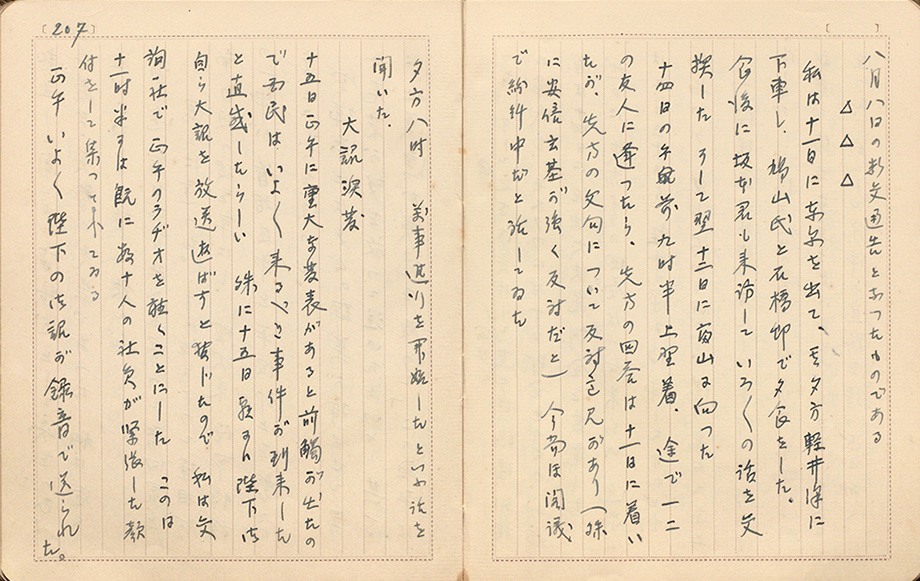 八月八日の新交通告となつたものである
△ △ △
私は十一日に東京を出て、其夕方軽井沢に
下車し、鳩山氏と石橋邸で夕食をした。
食後に坂本君も来訪していろ〱の話を交
換した そして翌十二日に富山に向つた
十四日の午前九時半上野着、途で一二
の友人に逢つたら、先方の回答は十一日に着い
たが、先方の文句について反対意見があり(殊
に安倍玄基が強く反対だと) 今尚ほ閣議
で紛糾中だと話してゐた
[207]
夕方八時 万事進行を開始したといふ話を
聞いた。
大詔渙発
十五日正午に重大な発表があると前触が出たの
で国民はいよ〱来るべき事件が到来した
と直感したらしい 殊に十五日朝 陛下
自ら大詔を放送遊ばすと報じたので 私は交
詢社で正午のラヂオを聴くことにした このは
十一時半には既に数十人の社員が緊張した顔
付をして集つて
正午いよ〱陛下の 詔が録音で送られた。